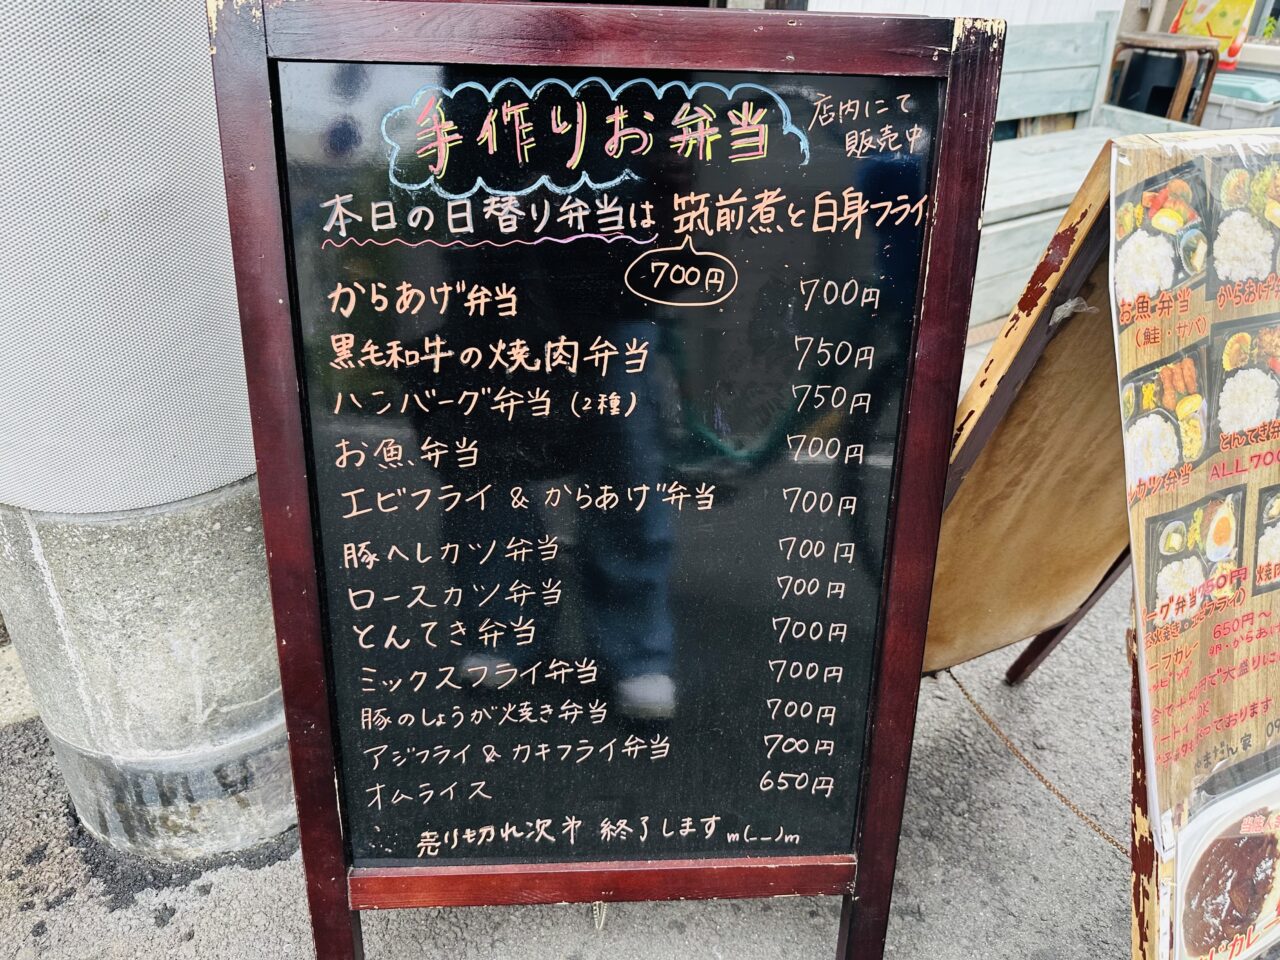 手作りお弁当
店内にて
販売中
本日の日替り弁当は 筑前煮と白身フライ
700円
からあげ弁当 700円
黒毛和牛の焼肉弁当 750円
ハンバーグ弁当(2種) 750円
お魚弁当 700円
エビフライ & からあげ弁当 700円
豚ヘレカツ弁当 700円
ロースカツ弁当 700円
とんてき弁当 700円
ミックスフライ弁当 700円
豚のしょうが焼き弁当 700円
アジフライ & カキフライ弁当 700円
オムライス 650円
売り切れ次㐧 終了します m(_ _)m
お魚弁当
(鮭・サバ)
からあげ
カツ弁当
とんてき弁
ALL700
グ弁当 750円
焼肉
650円〜
フカレー
ッピング
で大盛りに
ております
カレー